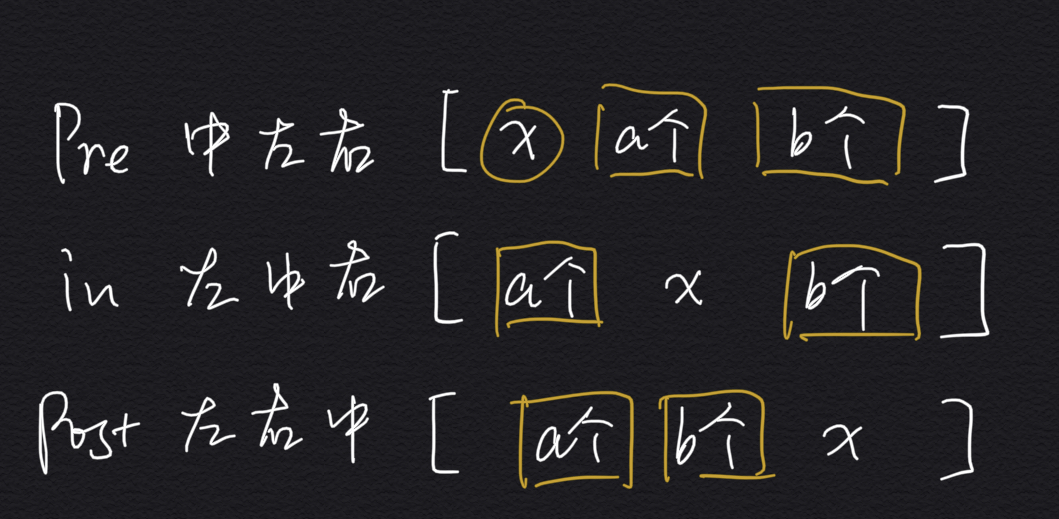 Pre 中左右 [ x a个 b个 ]
in 左中右 [ a个 x b个 ]
Post 左右中 [ a个 b个 x ]